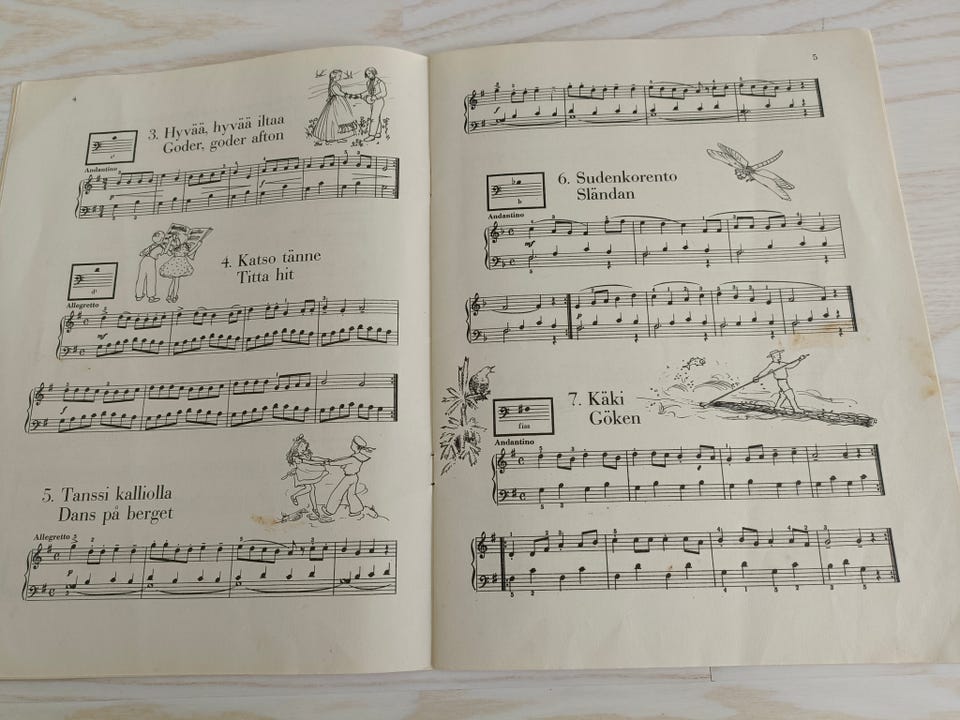 4
3. Hyvää, hyvää iltaa
Goder, goder afton
c¹
Andantino
p
f
4. Katso tänne
Titta hit
d¹
Allegretto
mf
f
5. Tanssi kalliolla
Dans på berget
Allegretto
p
5
6. Sudenkorento
Sländan
b
Andantino
mf
p
7. Käki
Göken
fiss
Andantino
p
f